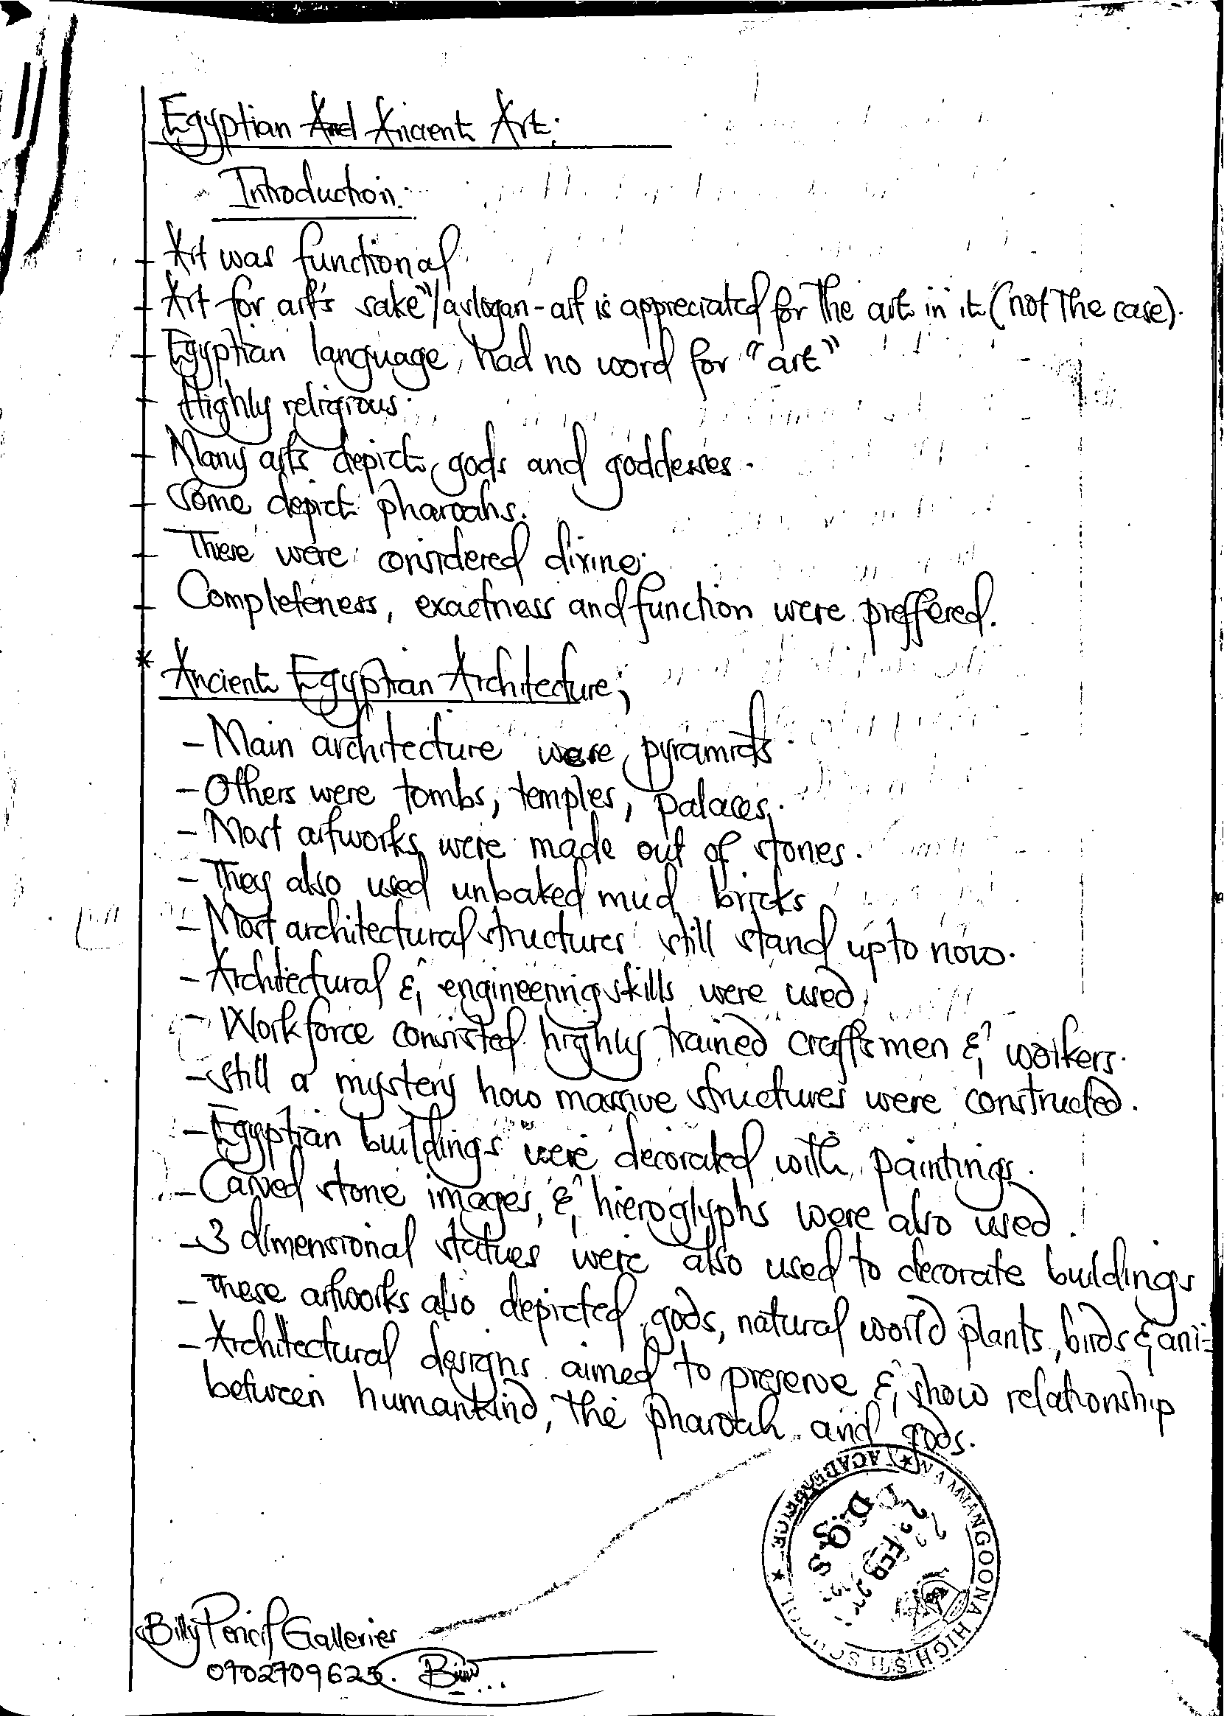 Egyptian And Ancient Art:
Introduction.
Art was functional
Art for art's sake"/aslogan - art is appreciated for the art in it (not the case).
Egyptian language had no word for "art"
Highly religious.
Many arts depict gods and goddesses.
Some depict pharoahs.
These were considered divine.
Completeness, exactness and function were preffered.
* Ancient Egyptian Architecture;
- Main architecture were pyramids.
- Others were tombs, temples, palaces.
- Most artworks were made out of stones.
- They also used unbaked mud bricks
- Most architectural structures still stand upto now.
- Architectural & engineering skills were used
- Workforce consisted highly trained craftsmen & workers.
- still a mystery how massive structures were constructed.
- Egyptian buildings were decorated with paintings.
- Carved stone images, & hieroglyphs were also used.
- 3 dimensional statues were also used to decorate buildings
- These artworks also depicted gods, natural world plants, birds & ani-
- Architectural designs aimed to preserve & show relationship
between humankind, the pharoah and gods.
WAMPEWO
D.O.S
FEB
HIGH SCHOOL
Billy Pencil Galleries
0702709625.